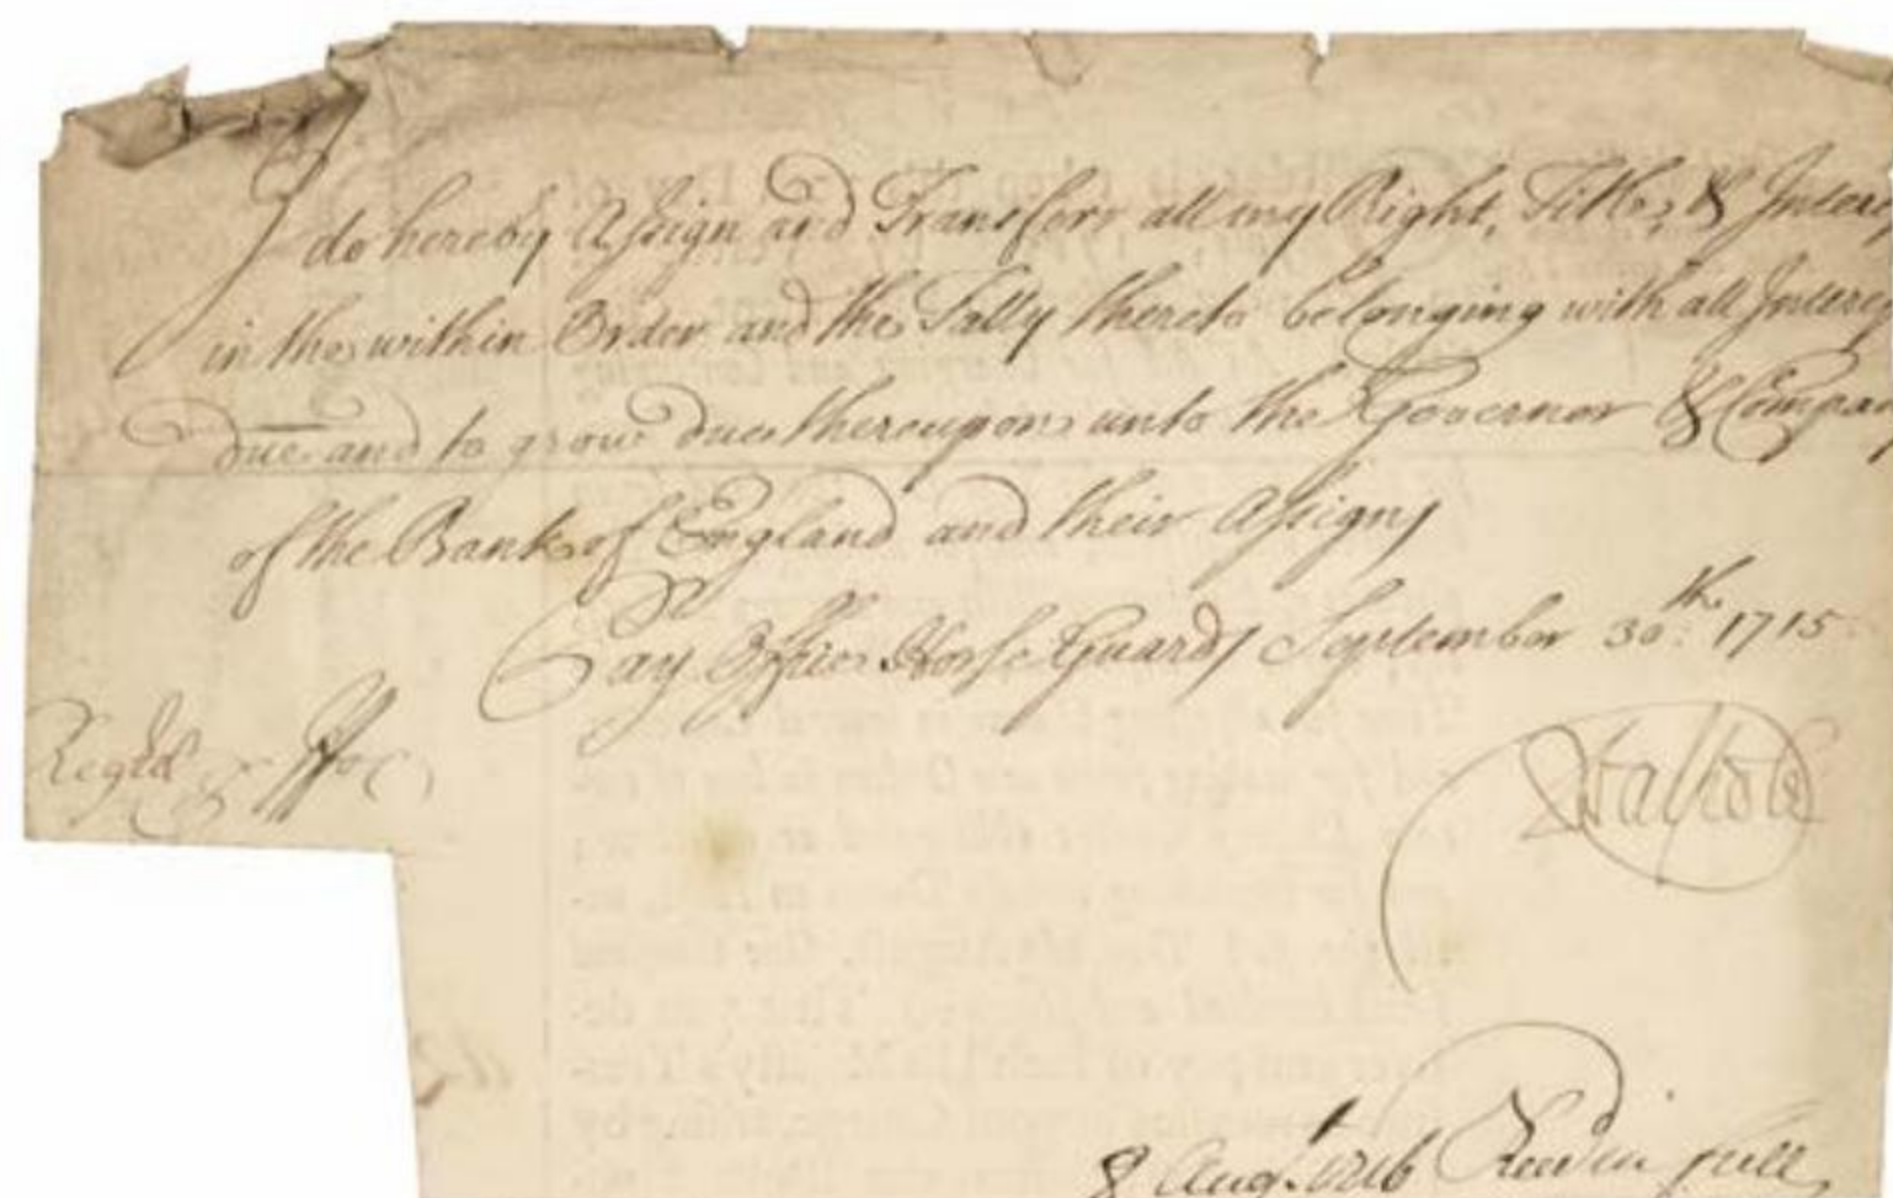 I do hereby Assign and Transferr all my Right, Title, & Interest
in the within Order and the Tally thereto belonging with all Interest
due and to grow due thereupon unto the Governor & Company
of the Bank of England and their Assigns
Pay Office Horse Guards September 30th. 1715
Regtd
RWalpole
8 Augt. 1716 Received in full